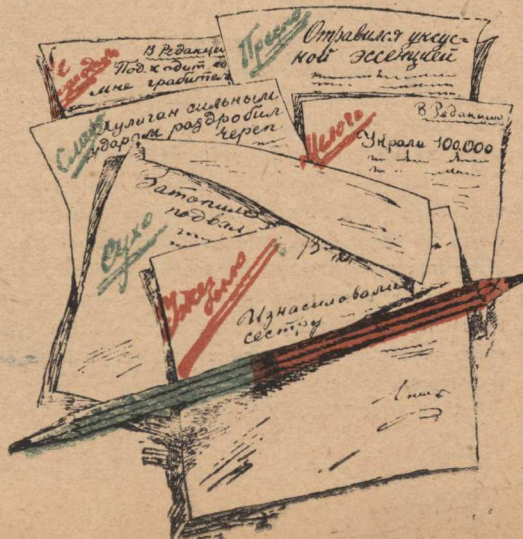 В Редакцию
Подходит ко
мне грабитель
Пресно
Отравился уксус-
ной эссенцией
Слабо
Хулиган сильным
ударом раздробил
череп
Мелочь
В Редакцию
Украли 100.000
Сухо
Затопило
подвал
Уже
было
Изнасиловали
сестру